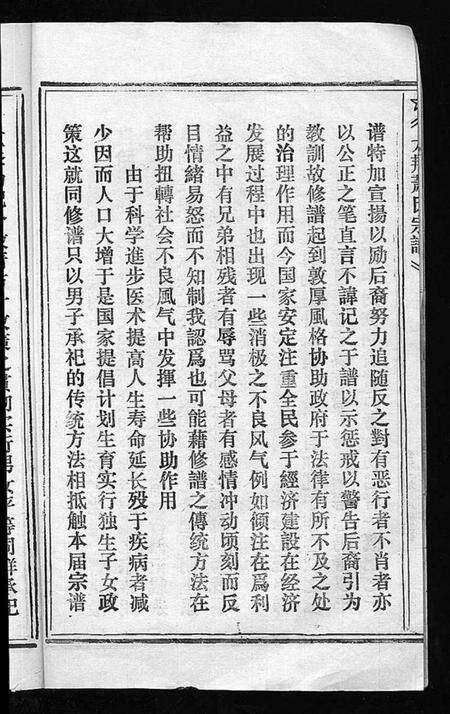 氏宗譜
谱特加宣揚以励后裔努力追随反之對有恶行者不肖者亦
以公正之笔直言不諱记之于譜以示惩戒以警告后裔引为
教訓故修譜起到敦厚風格协助政府于法律有所不及之处
的治理作用而今国家安定注重全民参于經济建設在经济
发展过程中也出现一些消极之不良风气例如倾注在爲利
益之中有兄弟相残者有辱骂父母者有感情冲动顷刻而反
目情緒易怒而不知制我認爲也可能藉修譜之傳统方法在
帮助扭轉社会不良風气中发揮一些协助作用
由于科学進步医术提高人生寿命延长殁于疾病者减
少因而人口大增于是国家提倡计划生育实行独生子女政
策这就同修谱只以男子承祀的传统方法相抵触本届宗谱